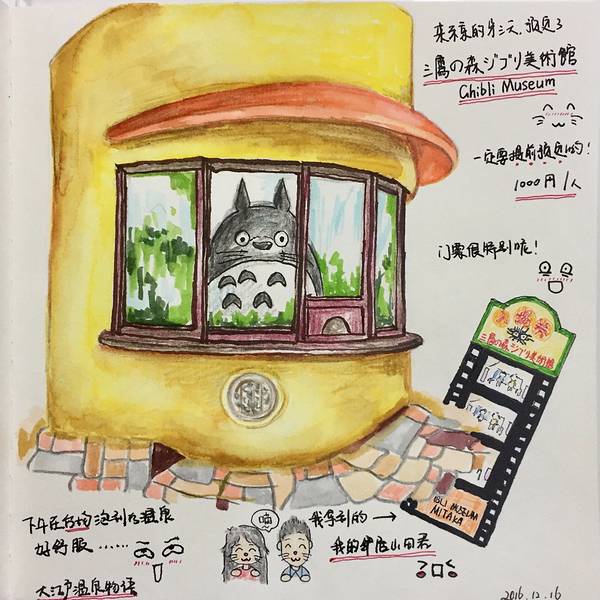 来东京的第三天,预约了
三鷹の森ジブリ美術館
Ghibli Museum
一定要提前预约的!
1000円/人
门票很特别呢!
入場券
三鷹の森ジブリ美術館
BLI MUSEUM
MITAKA
下午在台场泡到了温泉
好舒服......
大江户温泉物语
我拿到的 →
我的邻居山田君
2016.12.16